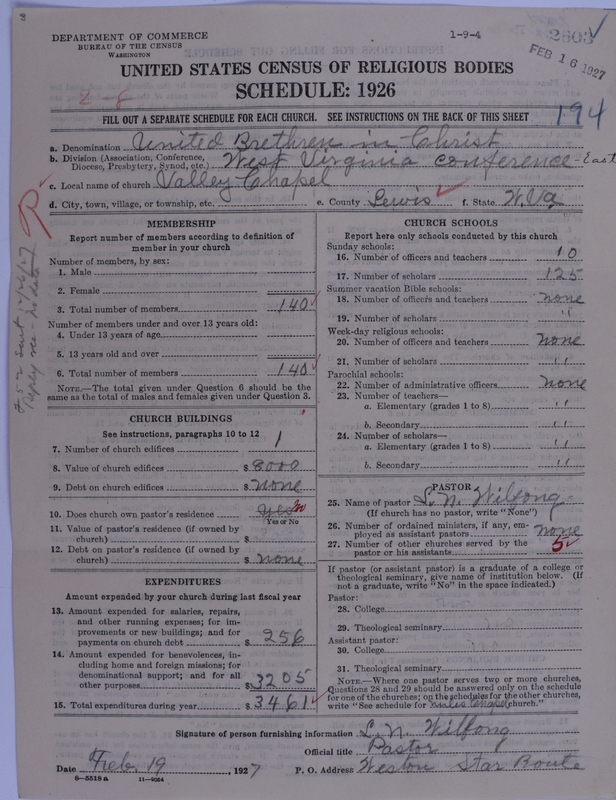 DEPARTMENT OF COMMERCE
BUREAU OF THE CENSUS
WASHINGTON
1-9-4
2603
FEB 16 1927
UNITED STATES CENSUS OF RELIGIOUS BODIES
SCHEDULE: 1926
FILL OUT A SEPARATE SCHEDULE FOR EACH CHURCH. SEE INSTRUCTIONS ON THE BACK OF THIS SHEET
194
a. Denomination United Brethren in Christ
b. Division (Association, Conference, Diocese, Presbytery, Synod, etc.) West Virginia Conference-East
c. Local name of church Valley Chapel
d. City, town, village, or township, etc. e. County Lewis f. State W. Va
MEMBERSHIP
Report number of members according to definition of
member in your church
Number of members, by sex:
1. Male
2. Female
3. Total number of members 140
Number of members under and over 13 years old:
4. Under 13 years of age
5. 13 years old and over
6. Total number of members 140
NOTE.—The total given under Question 6 should be the
same as the total of males and females given under Question 3.
CHURCH BUILDINGS
See instructions, paragraphs 10 to 12
7. Number of church edifices 1
8. Value of church edifices $ 8000
9. Debt on church edifices $ none
10. Does church own pastor's residence yes no
Yes or No
11. Value of pastor's residence (if owned by
church) $
12. Debt on pastor's residence (if owned by
church) $ none
EXPENDITURES
Amount expended by your church during last fiscal year
13. Amount expended for salaries, repairs,
and other running expenses; for im-
provements or new buildings; and for
payments on church debt $ 256
14. Amount expended for benevolences, in-
cluding home and foreign missions; for
denominational support; and for all
other purposes $ 3205
15. Total expenditures during year $ 3461
CHURCH SCHOOLS
Report here only schools conducted by this church
Sunday schools:
16. Number of officers and teachers 10
17. Number of scholars 125
Summer vacation Bible schools:
18. Number of officers and teachers none
19. Number of scholars "
Week-day religious schools:
20. Number of officers and teachers none
21. Number of scholars "
Parochial schools:
22. Number of administrative officers none
23. Number of teachers—
a. Elementary (grades 1 to 8) "
b. Secondary "
24. Number of scholars—
a. Elementary (grades 1 to 8) "
b. Secondary "
PASTOR
25. Name of pastor L. N. Wilfong
(If church has no pastor, write "None")
26. Number of ordained ministers, if any, em-
ployed as assistant pastors none
27. Number of other churches served by the
pastor or his assistants 5
If pastor (or assistant pastor) is a graduate of a college or
theological seminary, give name of institution below. (If
not a graduate, write "No" in the space indicated.)
Pastor:
28. College
29. Theological seminary
Assistant pastor:
30. College
31. Theological seminary
NOTE.—Where one pastor serves two or more churches,
Questions 28 and 29 should be answered only on the schedule
for one of the churches; on the schedules for the other churches,
write "See schedule for Chapel church."
Signature of person furnishing information L. N. Wilfong
Official title Pastor
Date Feb. 19, 1927 P. O. Address Weston Star Route
8-5518a 11-9064